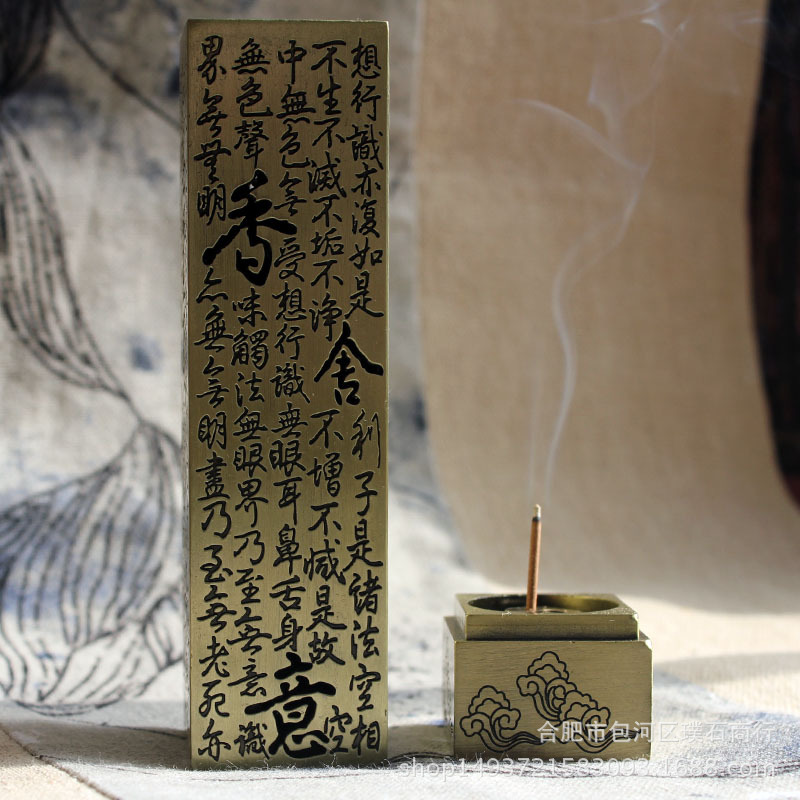 想行識亦復如是舍利子是諸法空相
不生不滅不垢不淨不增不減是故空
中無色無受想行識無眼耳鼻舌身意
無色聲香味觸法無眼界乃至無意識
界無無明亦無無明盡乃至無老死亦
合肥市包河区璞石商行
shop1493721583093.1688.com